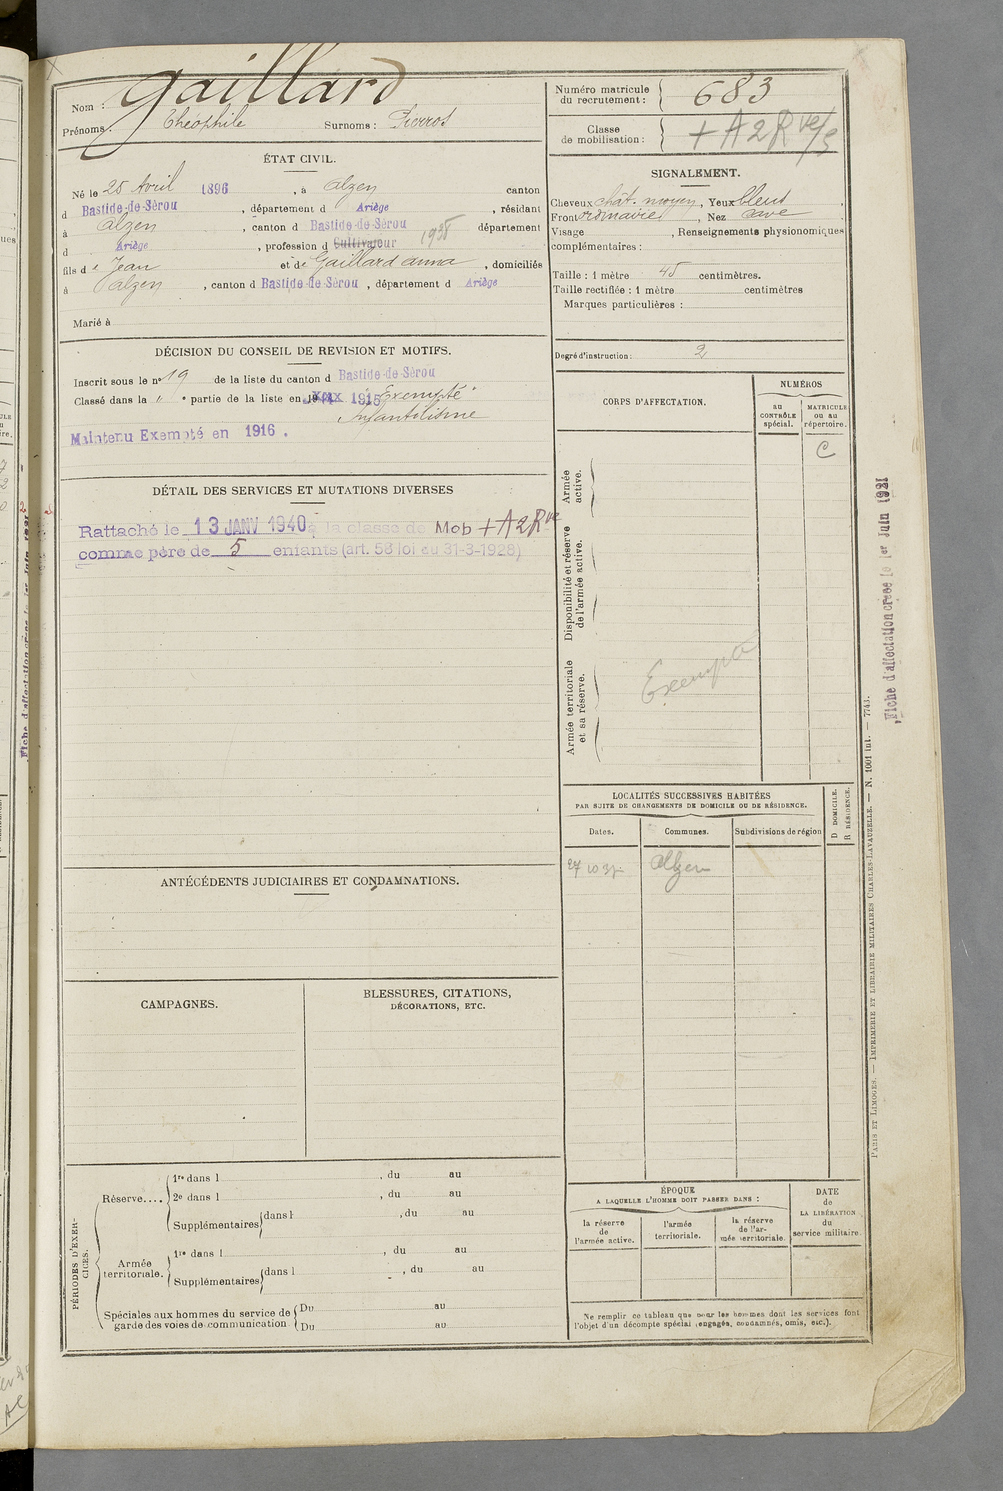 Nom : Gaillard
Prénoms : Théophile Surnoms : Pierrot
ÉTAT CIVIL.
Né le 25 Avril 1896, à Alzen canton
d Bastide-de-Sérou, département d Ariège, résidant
à Alzen, canton d Bastide-de-Sérou département
d Ariège, profession d Cultivateur 1938
fils de Jean et de Gaillard Anna, domiciliés
à Alzen, canton d Bastide-de-Sérou, département d Ariège
Marié à
DÉCISION DU CONSEIL DE REVISION ET MOTIFS.
Inscrit sous le nº 19 de la liste du canton d Bastide-de-Sérou
Classé dans la " e partie de la liste en 1915 Exempté
Infantilisme
Maintenu Exempté en 1916.
DÉTAIL DES SERVICES ET MUTATIONS DIVERSES
Rattaché le 13 JANV 1940 à la classe de Mob + A2Rve
comme père de 5 enfants (art. 58 loi du 31-3-1928)
ANTÉCÉDENTS JUDICIAIRES ET CONDAMNATIONS.
CAMPAGNES.
BLESSURES, CITATIONS,
DÉCORATIONS, ETC.
PÉRIODES D'EXERCICES.
Réserve....
1re dans l , du au
2e dans l , du au
Supplémentaires dans l , du au
Armée territoriale.
1re dans l , du au
Supplémentaires dans l , du au
Spéciales aux hommes du service de Du au
garde des voies de communication Du au
Numéro matricule
du recrutement : 683
Classe
de mobilisation : + A2R ve/s
SIGNALEMENT.
Cheveux chât. moyen, Yeux bleus,
Front ordinaire, Nez cave
Visage , Renseignements physionomiques
complémentaires :
Taille : 1 mètre 45 centimètres.
Taille rectifiée : 1 mètre centimètres
Marques particulières :
Degré d'instruction : 2
CORPS D'AFFECTATION.
NUMÉROS
au CONTRÔLE spécial.
MATRICULE ou au répertoire.
C
Armée active.
Disponibilité et réserve de l'armée active.
Armée territoriale et sa réserve.
Exempté
LOCALITÉS SUCCESSIVES HABITÉES
PAR SUITE DE CHANGEMENTS DE DOMICILE OU DE RÉSIDENCE.
D DOMICILE.
R RÉSIDENCE.
Dates. Communes. Subdivisions de région
27 10 Alzen
ÉPOQUE
A LAQUELLE L'HOMME DOIT PASSER DANS :
la réserve de l'armée active.
l'armée territoriale.
la réserve de l'armée territoriale.
DATE
de
LA LIBÉRATION
du
service militaire.
Ne remplir ce tableau que pour les hommes dont les services font
l'objet d'un décompte spécial (engagés, condamnés, omis, etc.).
PARIS ET LIMOGES. — IMPRIMERIE ET LIBRAIRIE MILITAIRES CHARLES-LAVAUZELLE. — N. 1001 int. — 7743.
Fiche d'affectation créée le 1er Juin 1921